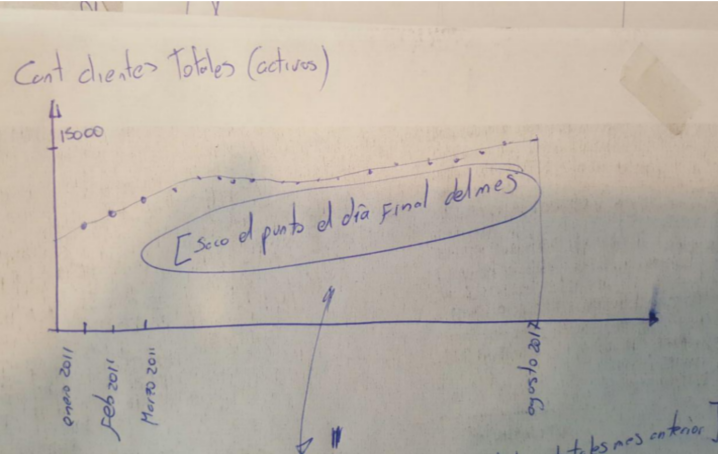 Cant clientes Totales (activos)
15000
[Saco el punto el día Final del mes
enero 2011
feb 2011
Marzo 2011
agosto 2017
mes anterior]